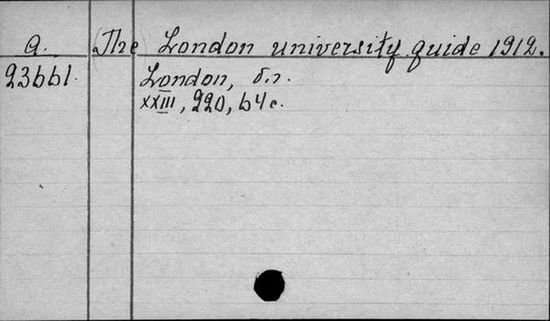 a. (The) London university guide 1912.
23661. London, б.г.
XXIII, 220, 64 c.